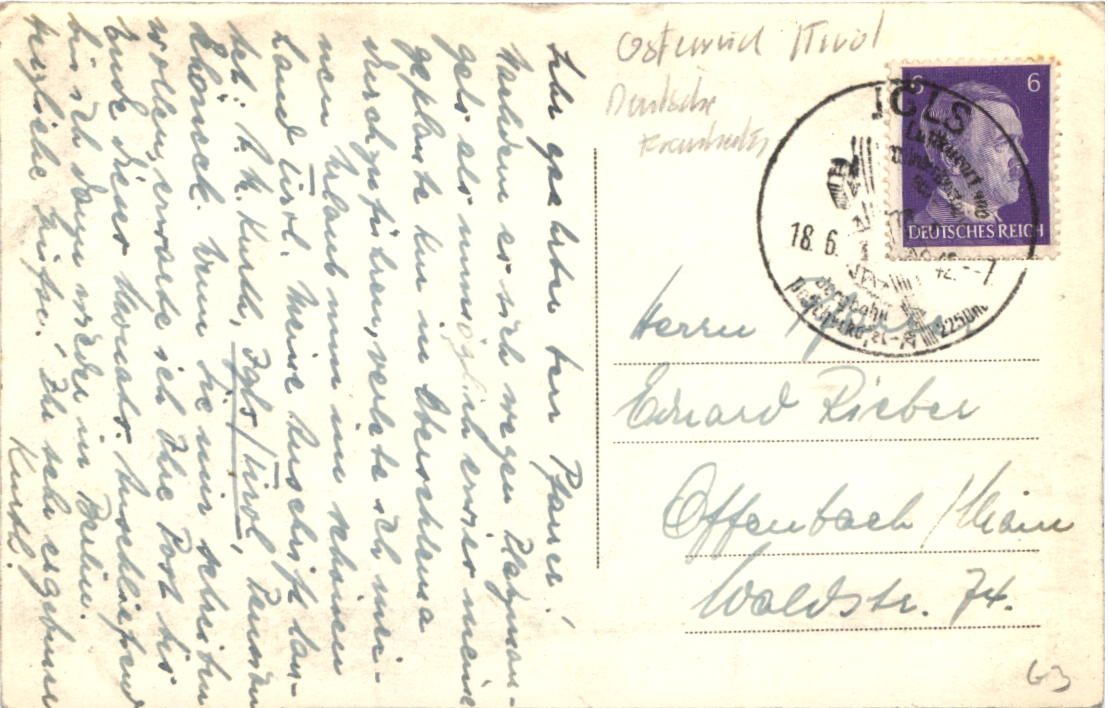 Österreich Tirol
Deutsche
6
6
DEUTSCHES REICH
IGLS
Luftkurort 900
18.6. 42.-7
Bergbahn
Patscherkofel
Herrn
Eduard Rieber
Offenbach / Main
Waldstr. 74.
63
Sehr geehrter Herr Pfarrer!
Nachdem es sich wegen Platzman-
gels als unmöglich erwies meine
geplante Kur in Oberschlema
durchzuführen, verlebe ich mei-
nen Urlaub nun im schönen
Land Tirol. Meine Anschrift lau-
tet: K. Kurth, Igls/Tirol, Pension
Wenn Sie mir schreiben
wollen, erwarte ich Ihre Post bis
Ende dieses Monats. Anschließend
bin ich dann wieder in Berlin.
Herzliche Grüße! Ihr sehr ergebener
Kurth.